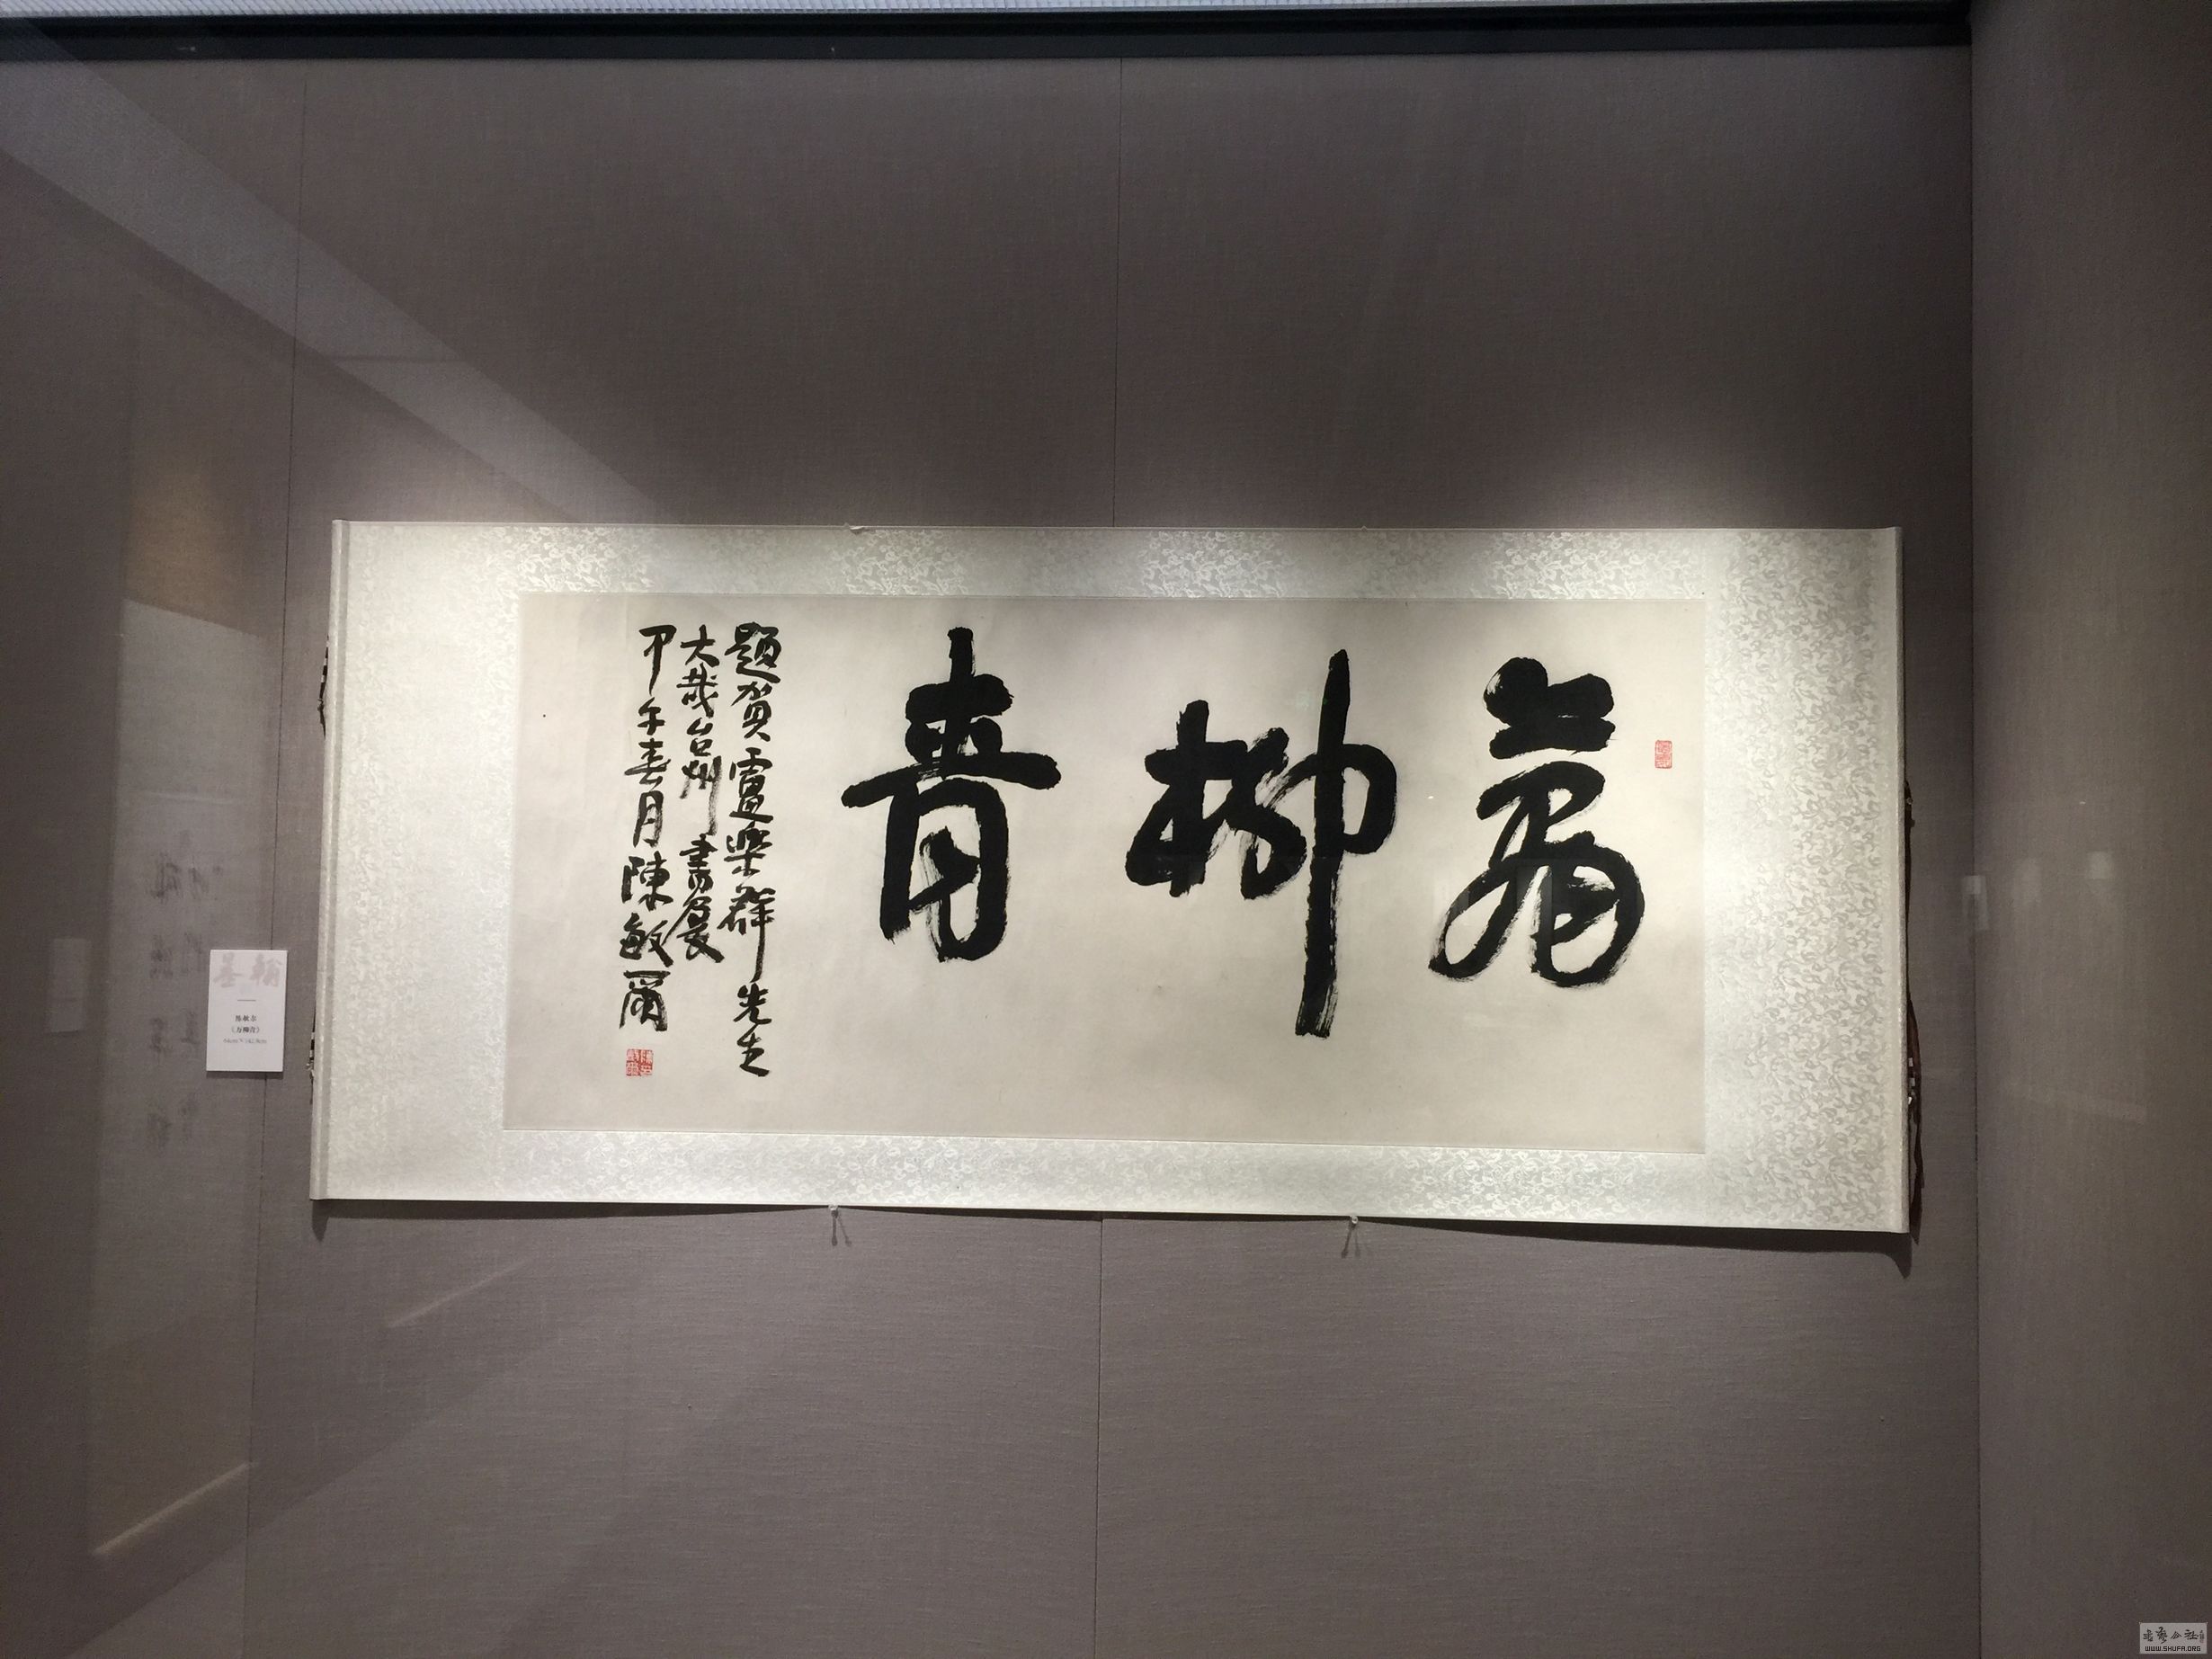 萬柳青
題賀盧樂群先生
大哉台州書展
甲午春月陳敏爾
翰墨
陈敏尔
《万柳青》
書藝公社
WWW.SHUFA.ORG